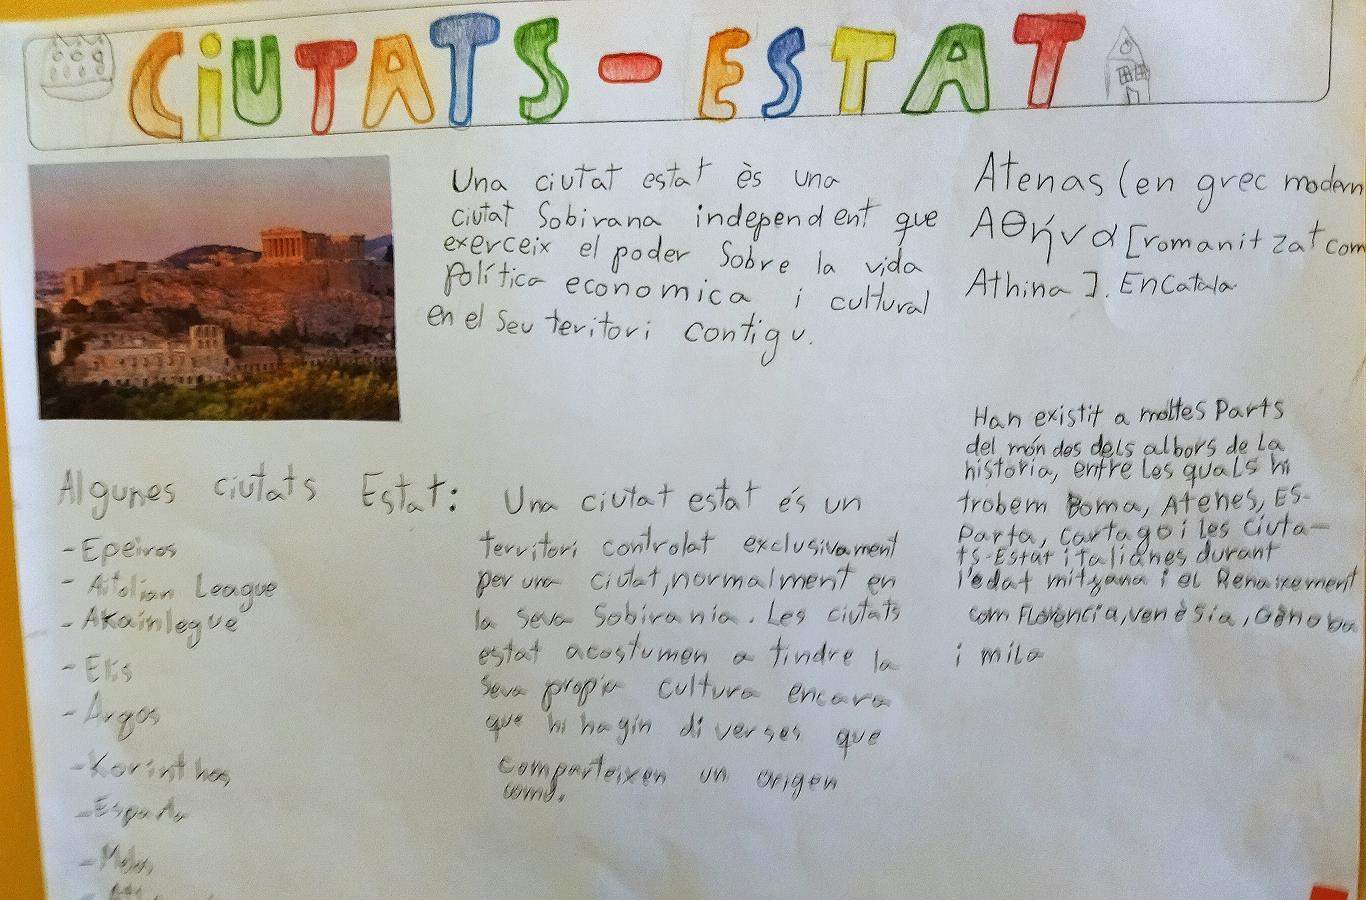 CiUTATS - ESTAT
Una ciutat estat ès una
ciutat Sobirana independent que
exerceix el poder Sobre la vida
Política economica i cultural
en el seu teritori contigu.
Atenas (en grec modern
Αθήνα [romanitzat com
Athina ]. En Catala
Han existit a moltes Parts
del món des dels albors de la
historia, entre les quals hi
trobem Roma, Atenes, ES-
Parta, Cartago i les ciuta-
ts-Estat italianes durant
l'edat mitjana i el Renaixement
com Florència, venèsia, Gènoba
i mila
Algunes ciutats Estat:
- Epeiros
- Aitolian League
- Akainlegue
- Elis
- Argos
- Korinthos
- Esparta
- Melos
Una ciutat estat és un
territori controlat exclusivament
per una ciutat, normalment en
la seva Sobirania. Les ciutats
estat acostumen a tindre la
seva propia cultura encara
que hi hagin diverses que
comparteixen un origen
comú.